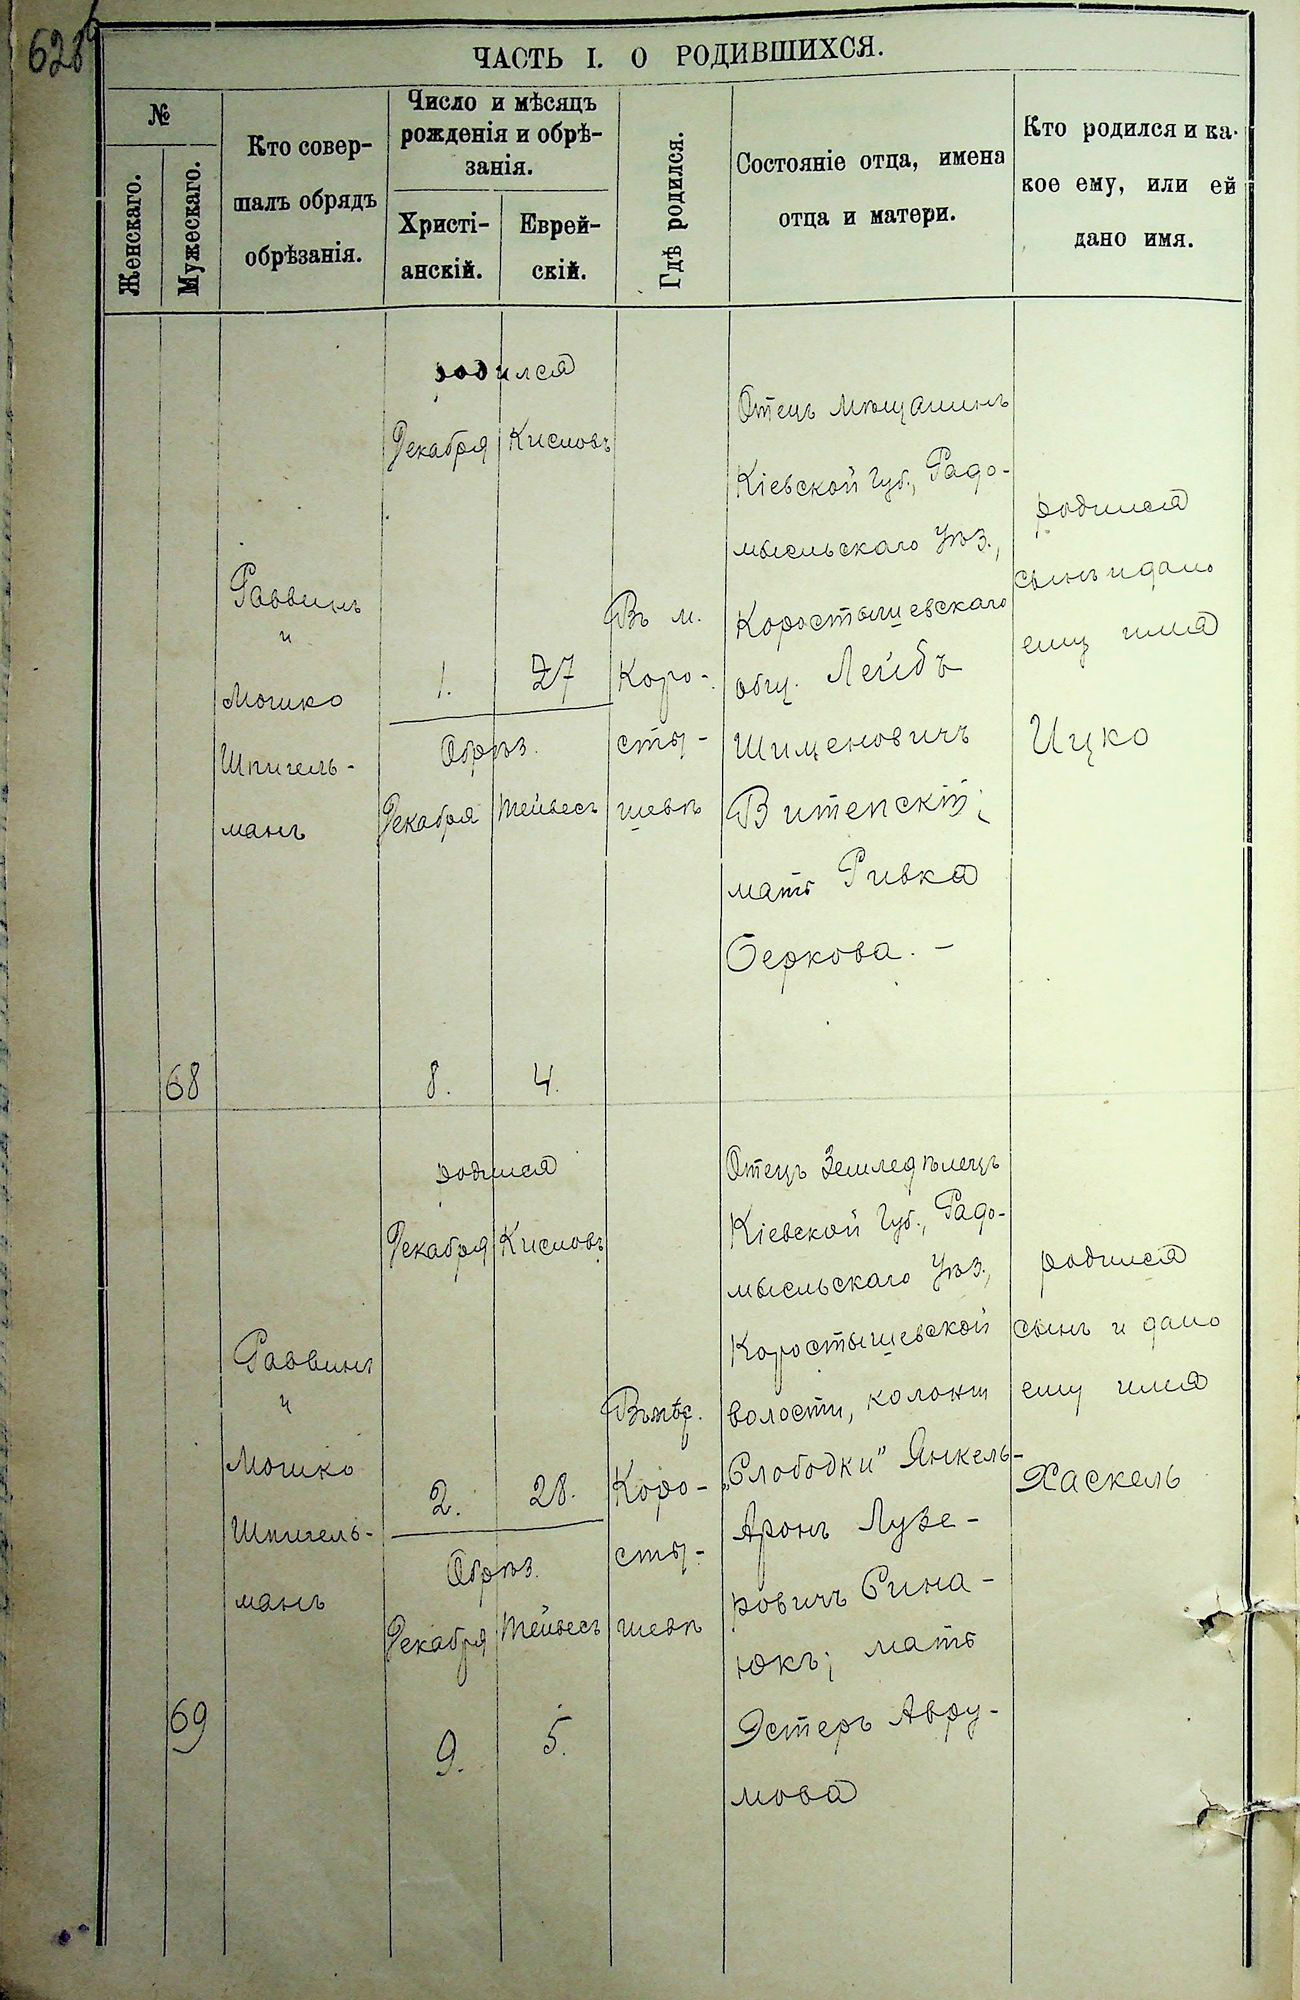 628
ЧАСТЬ I. О РОДИВШИХСЯ.
№
Женскаго.
Мужескаго.
Кто совер-
шалъ обрядъ
обрѣзанія.
Число и мѣсяцъ
рожденія и обрѣ-
занія.
Христі-
анскій.
Еврей-
скій.
Гдѣ родился.
Состояніе отца, имена
отца и матери.
Кто родился и ка-
кое ему, или ей
дано имя.
68
Раввинъ
и
Мошко
Шпигель-
манъ
родился
Декабря Кислювъ
1. 27
Обрѣз.
Декабря Тейвесъ
8. 4.
Въ м.
Коро-
сты-
шевѣ
Отецъ мѣщанинъ
Кіевской Губ., Радо-
мысльскаго Уѣз.,
Коростышевскаго
общ. Лейбъ
Шименовичъ
Витепскій;
мать Ривка
Беркова. –
родился
сынъ и дано
ему имя
Ицко
69
Раввинъ
и
Мошко
Шпигель-
манъ
родился
Декабря Кислювъ
2. 28.
Обрѣз.
Декабря Тейвесъ
9. 5.
Коро-
сты-
шевѣ
Отецъ Земледѣлецъ
Кіевской Губ., Радо-
мысльскаго Уѣз.,
Коростышевской
волости, колоніи
„Слободки" Янкель-
Аронъ Лузе-
ровичъ Сина-
юкъ; мать
Эстеръ Авру-
мова
родился
сынъ и дано
ему имя
Хаскель